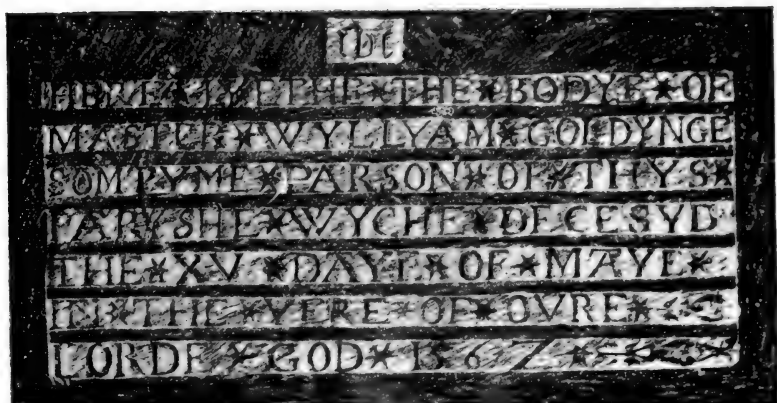 ihc
HERE★LYETHE★THE★BODYE★OF
MASTER★WYLLYAM★GOLDYNGE
SOMTYME★PARSON★OF★THYS★
PARYSHE★WYCHE★DECESYD
THE★XV★DAYE★OF★MAYE★
IN★THE★YERE★OF★OVRE★
LORDE★GOD★1567★